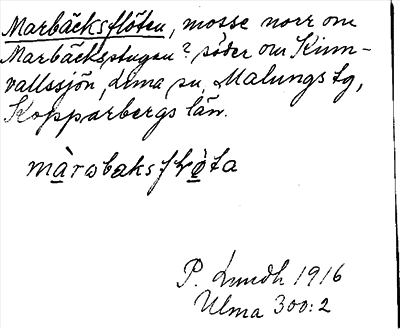 Marbäcksflöten, mosse norr om
Marbäckstugan? söder om Kinn-
vallssjön, Lima sn, Malungs tg,
Kopparbergs län.
P. Lundh 1916
Ulma 300:2